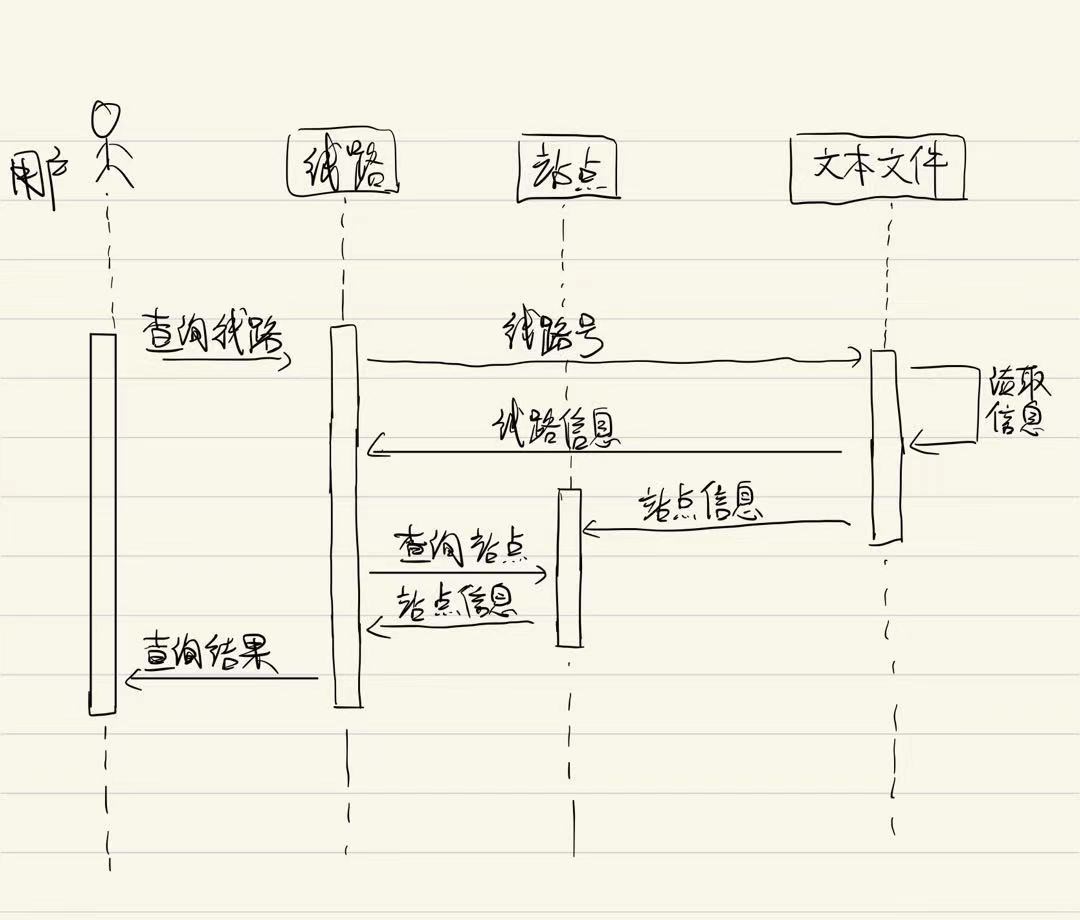 用户
线路
站点
文本文件
查询线路
线路号
读取
信息
线路信息
站点信息
查询站点
站点信息
查询结果